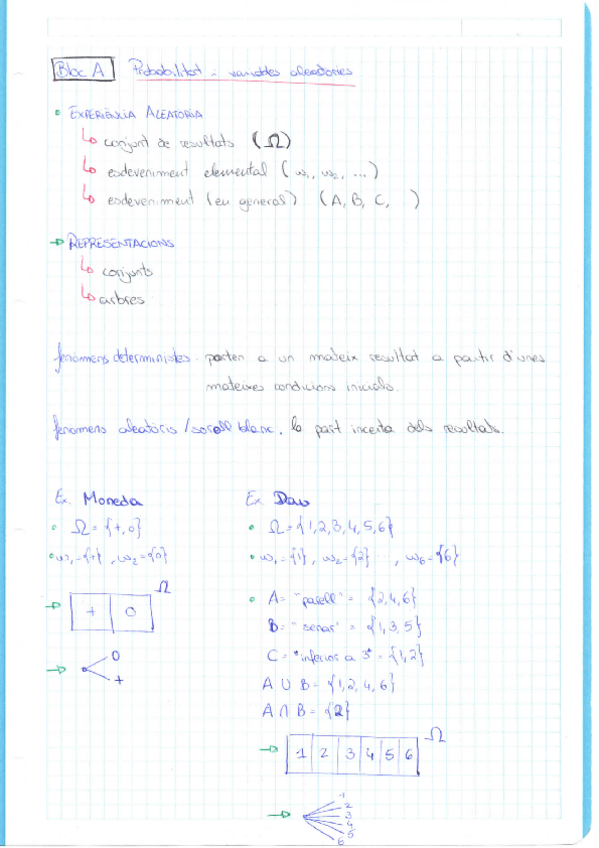 Bloc A Probabilitat i variables aleatòries
• EXPERIÈNCIA ALEATÒRIA
↳ conjunt de resultats (Ω)
↳ esdeveniment elemental (ω₁, ω₂, ...)
↳ esdeveniment (en general) (A, B, C, )
→ REPRESENTACIONS
↳ conjunts
↳ arbres
fenòmens deterministes. porten a un mateix resultat a partir d'unes
mateixes condicions inicials.
fenòmens aleatòris / soroll blanc. la part incerta dels resultats.
Ex. Moneda
• Ω = {+, o}
• ω₁ = {+}, ω₂ = {o}
→ + o Ω
→ o
+
Ex. Dau
• Ω = {1,2,3,4,5,6}
• ω₁ = {1}, ω₂ = {2} ..., ω₆ = {6}
• A = "parell" = {2,4,6}
B = "senar" = {1,3,5}
C = "inferior a 3" = {1,2}
A ∪ B = {1,2,4,6}
A ∩ B = {2}
→ 1 2 3 4 5 6 Ω
→ 1
2
3
4
5
6